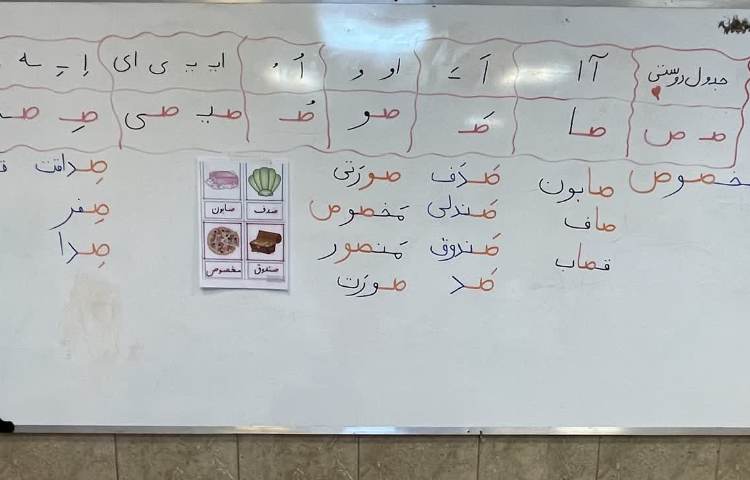 جدول دوستی آ ا اَ ـَ او و اُ ـُ ایـ یـ ی ای اِ ـِ ـه
صـ ص صا صَـ صو صُـ صیـ صی صِـ
صابون
صاف
قصاب
صَدَف
صَندلی
صَندوق
صَد
صورَتی
مَخصوص
مَنصور
صورَت
صدف صابون
صندوق مخصوص
صِداقت
صِفر
صِدا